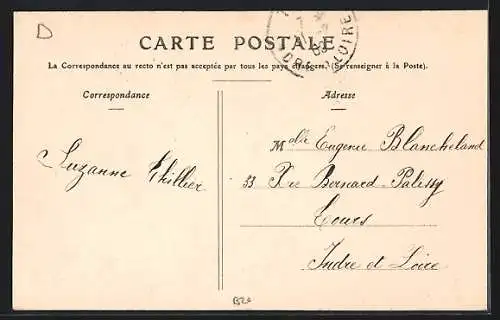 D
CARTE POSTALE
La Correspondance au recto n'est pas acceptée par tous les pays étrangers. (Se renseigner à la Poste).
Correspondance
Adresse
Mdlle Eugenie Blancheland
Suzanne Thillier
33 R. Bernard-Palissy
Tours
Indre et Loire
B20